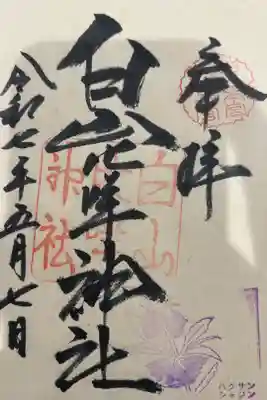 奉拝
白山比咩神社
令和七年五月七日
白山
比咩
神社
ハクサン
シャジン